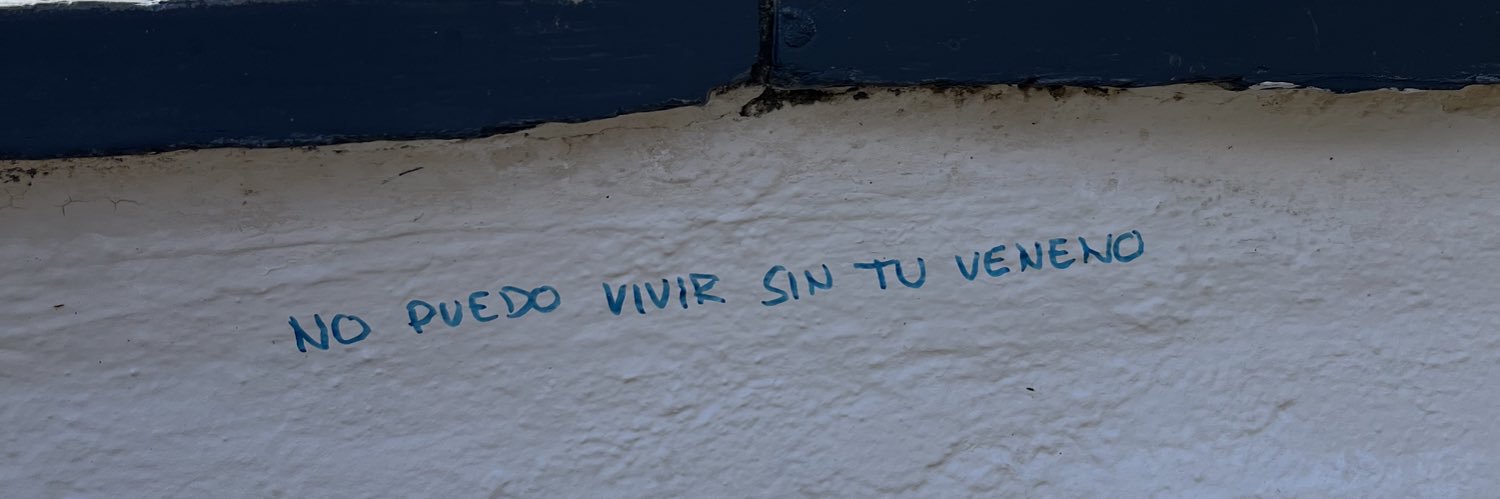 NO PUEDO VIVIR SIN TU VENENO